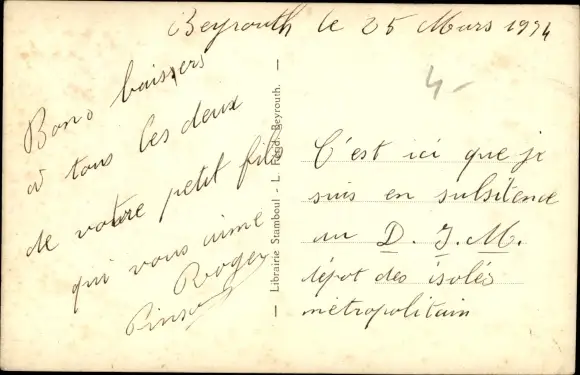 Beyrouth le 25 Mars 1924
4-
Bons baissers
à tous les deux
de votre petit fils
qui vous aime
Roger
— Librairie Stamboul - L. Férid. Beyrouth. —
C'est ici que je
suis en subsitence
au D. I. M.
dépot des isolés
métropolitain